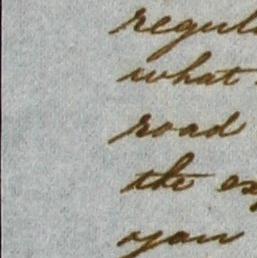 regul
what
road
the ex
you